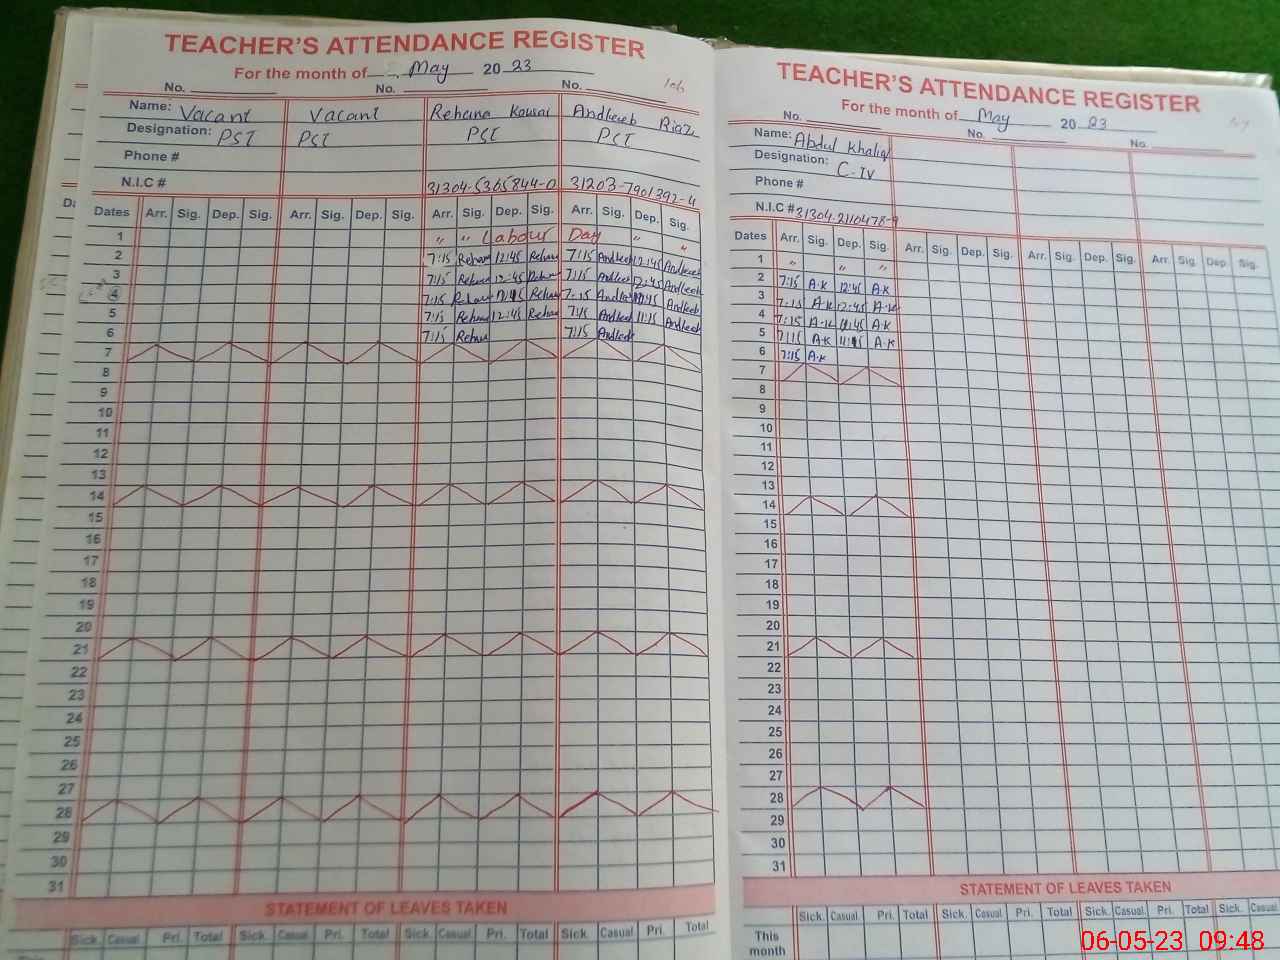 TEACHER'S ATTENDANCE REGISTER
For the month of May 2023
No. No. No.
Name: Vacant Vacant Rehana Kousar Andleeb Riaz
Designation: PST PST PST PST
Phone #
N.I.C # 31304-5365844-0 31203-7901392-4
Dates Arr. Sig. Dep. Sig. Arr. Sig. Dep. Sig. Arr. Sig. Dep. Sig. Arr. Sig. Dep. Sig.
1 " " Labour Day " "
2 7:15 Rehana 12:45 Rehana 7:15 Andleeb 12:45 Andleeb
3 7:15 Rehana 12:45 Rehana 7:15 Andleeb 12:45 Andleeb
4 7:15 Rehana Rehana 7:15 Andleeb Andleeb
5 7:15 Rehana 12:45 Rehana 7:15 Andleeb 11:15 Andleeb
6 7:15 Rehana 7:15 Andleeb
7
8
9
10
11
12
13
14
15
16
17
18
19
20
21
22
23
24
25
26
27
28
29
30
31
STATEMENT OF LEAVES TAKEN
Sick. Casual Pri. Total Sick. Casual Pri. Total Sick. Casual Pri. Total Sick. Casual Pri. Total
TEACHER'S ATTENDANCE REGISTER
For the month of May 2023
No. No. No.
Name: Abdul Khaliq
Designation: C-IV
Phone #
N.I.C # 31304-2110478-9
Dates Arr. Sig. Dep. Sig. Arr. Sig. Dep. Sig. Arr. Sig. Dep. Sig. Arr. Sig. Dep. Sig.
1 " " "
2 7:15 A.K 12:45 A.K
3 7:15 A.K 12:45 A.K
4 7:15 A.K A.K
5 7:15 A.K A.K
6 7:15 A.K
7
8
9
10
11
12
13
14
15
16
17
18
19
20
21
22
23
24
25
26
27
28
29
30
31
STATEMENT OF LEAVES TAKEN
Sick. Casual Pri. Total Sick. Casual Pri. Total Sick. Casual Pri. Total Sick. Casual
This month
06-05-23 09:48